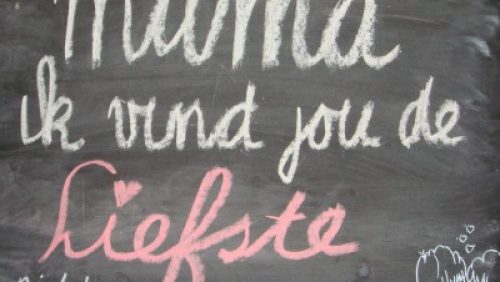 Mama
ik vind jou de
Liefste